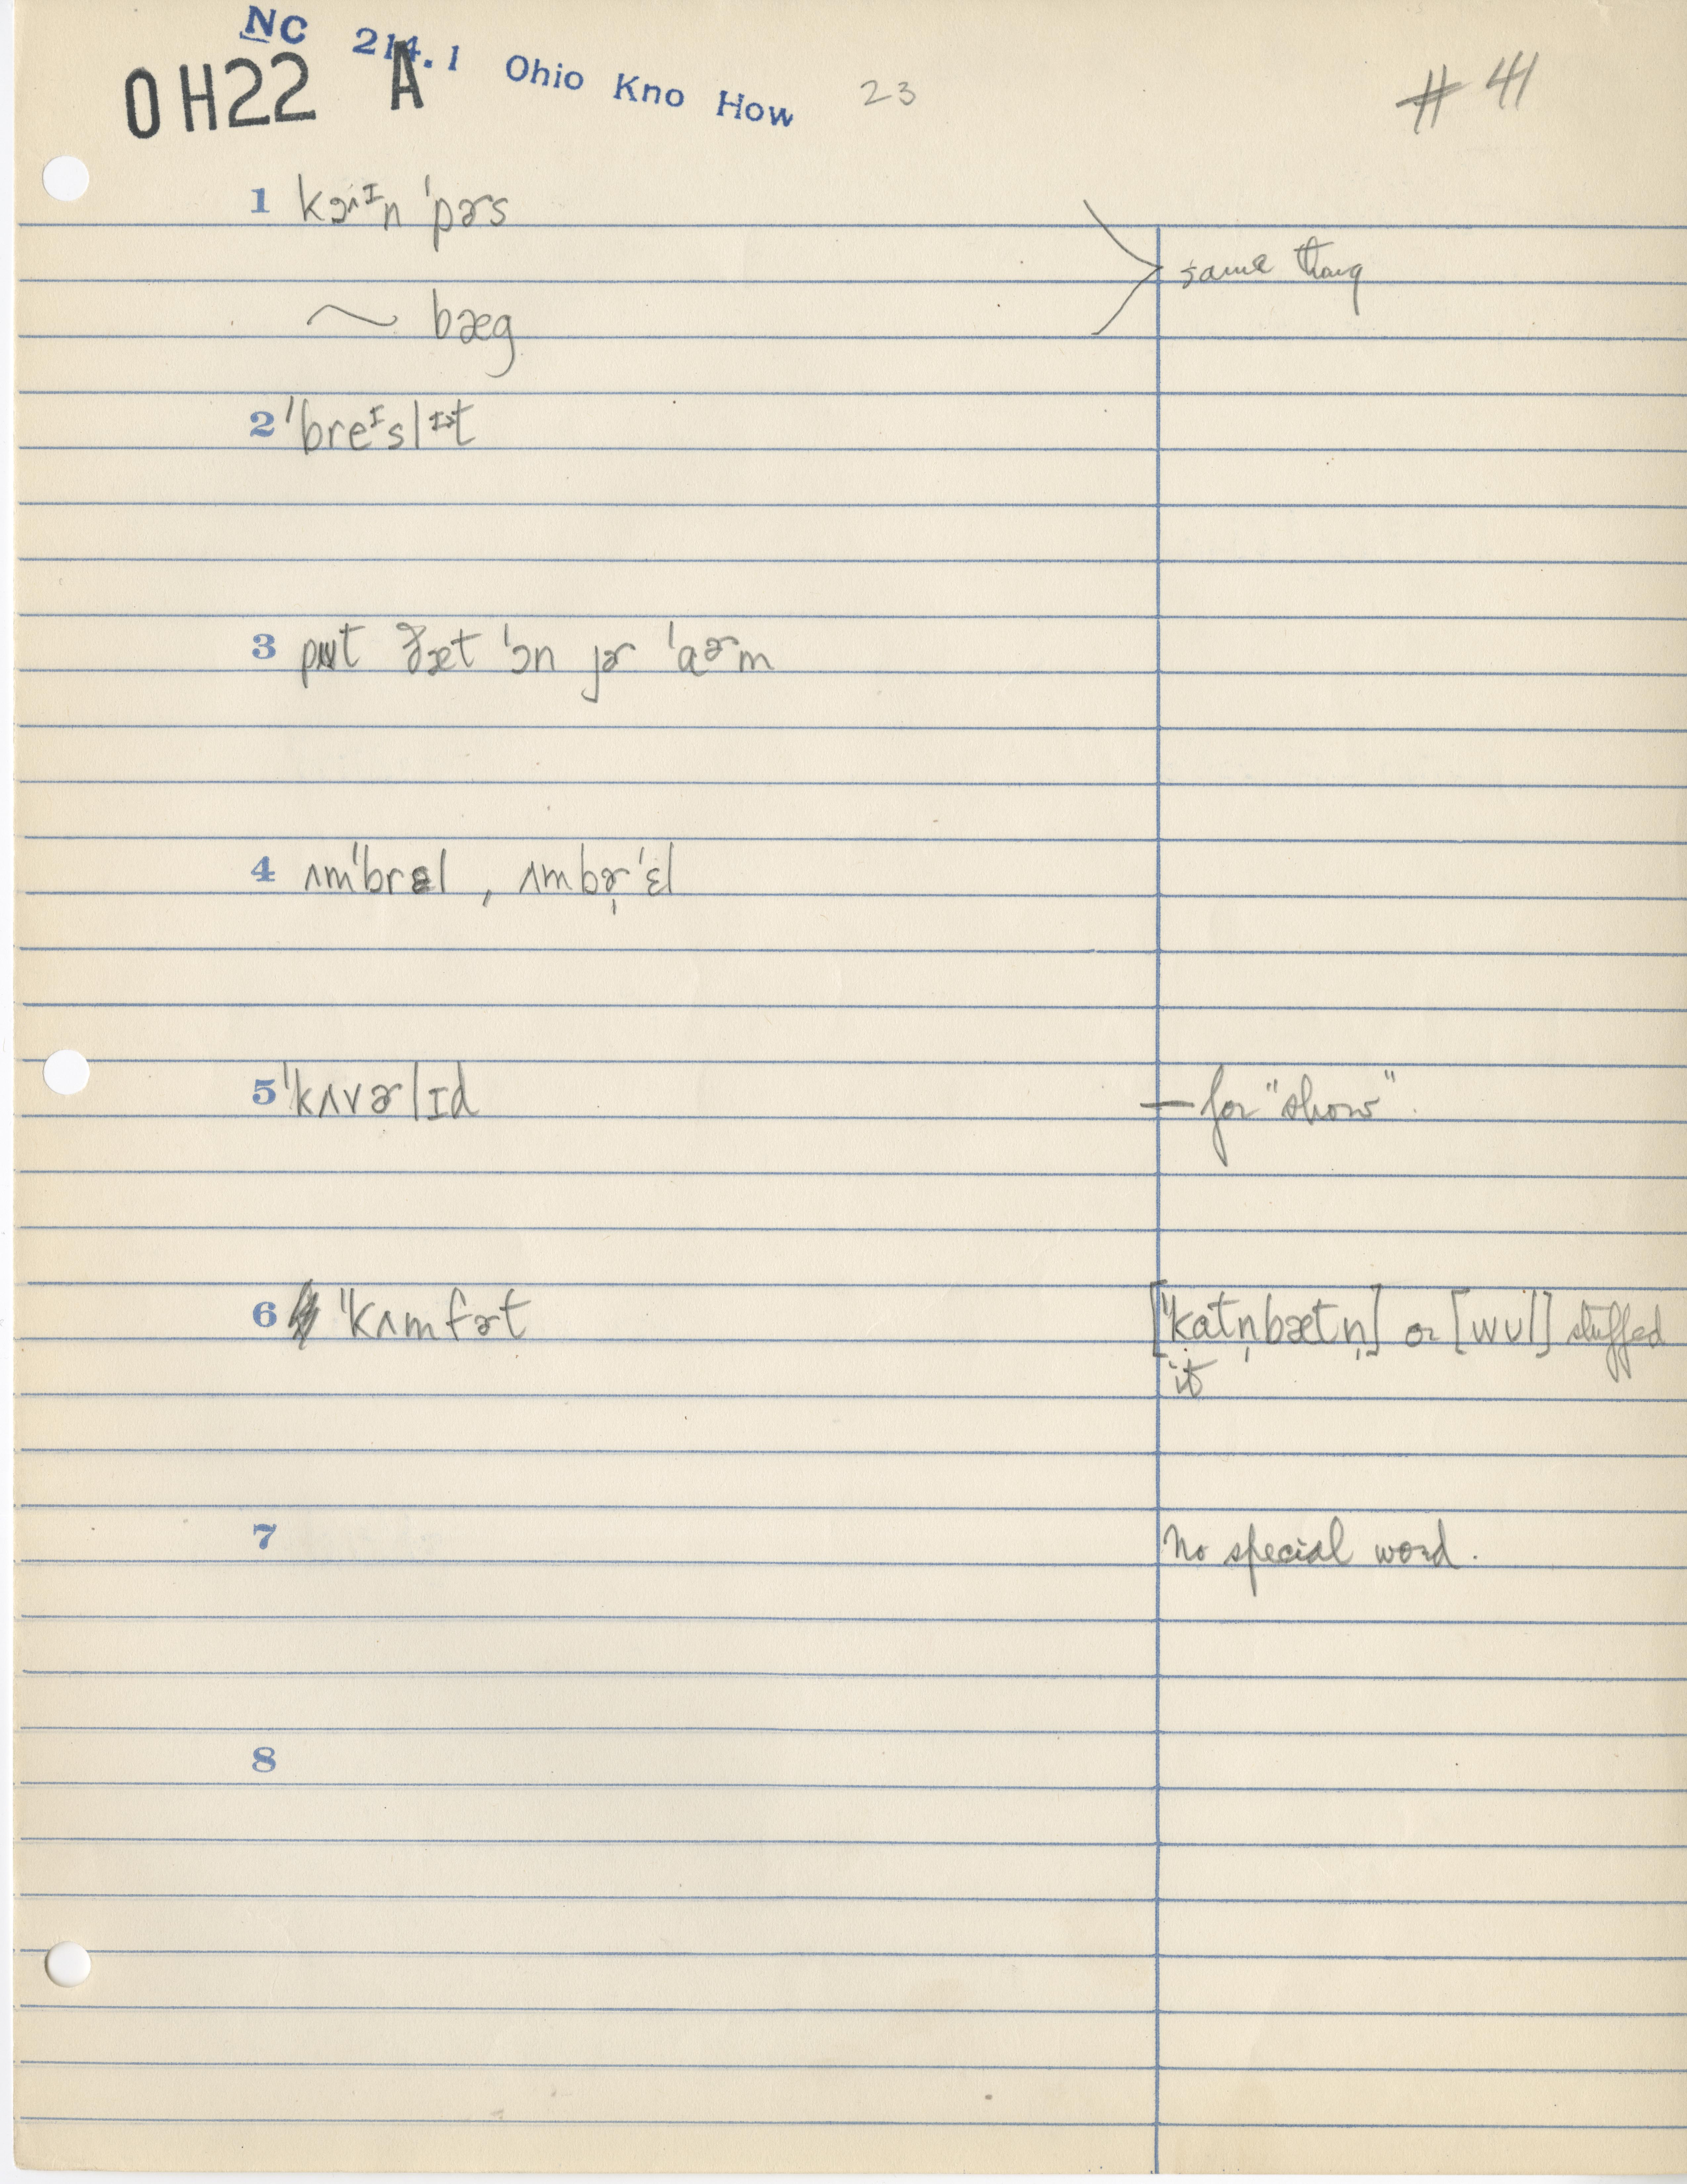 NC 214.1 Ohio Kno How 23
OH22 A # 41
1 kɔɪᴵn ˈpɚs
same thing
~ bæg
2 ˈbreᴵslɪət
3 pʊt ðæt ˈɔn jɚ ˈaɚm
4 ʌmˈbrɛl , ʌmbɚˈɛl
5 ˈkʌvɚlɪd — for "show".
6 "kʌmfɚt ["katn̩bætn̩] or [wʊl] stuffed
it
7 No special word.
8